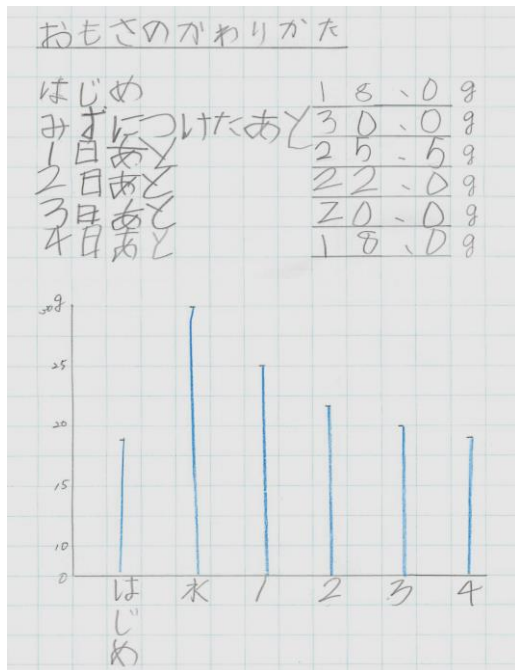 おもさのかわりかた
はじめ 18、0g
みずにつけたあと 30、0g
1日あと 25、5g
2日あと 22、0g
3日あと 20、0g
4日あと 18、0g
30g
25
20
15
10
0
はじめ 水 1 2 3 4